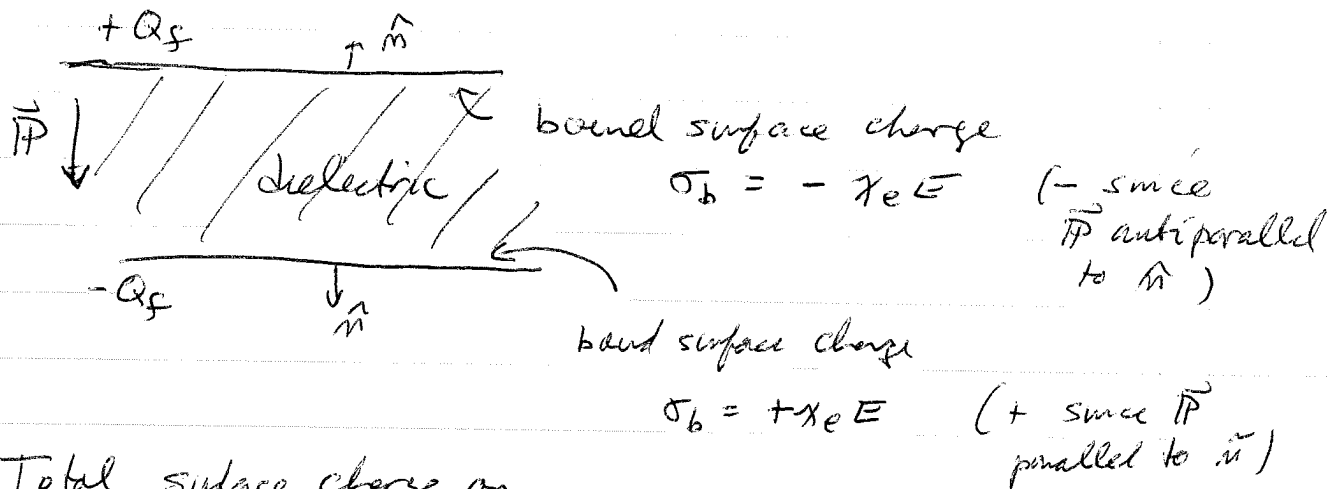 +Q_f n̂
P⃗ bound surface charge
dielectric σ_b = - χ_e E (- since
P⃗ antiparallel
to n̂)
-Q_f n̂
bound surface charge
σ_b = +χ_e E (+ since P⃗
parallel to n̂)
Total surface charge on